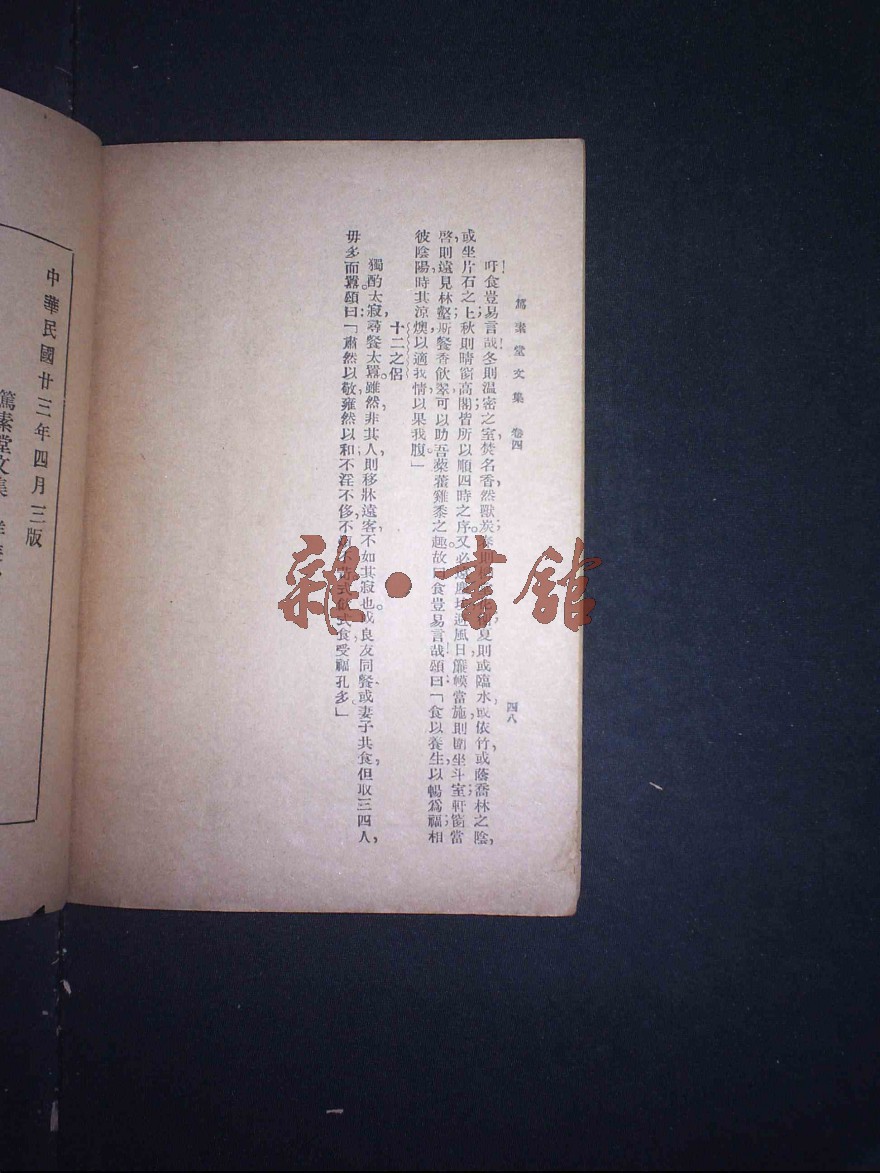 篤素堂文集 卷四 四八
吁！食豈易言哉！冬則溫密之室，焚名香，然獸炭；夏則或臨水，或依竹，或蔭喬林之陰，
或坐片石之上；秋則晴窗高閣，皆所以順四時之序。又必遠塵埃，避風日，簾幙當施，則圍坐斗室；軒窗當
啓，則遠見林壑。斯餐香飲翠，可以助吾藜藿雞黍之趣。故曰食豈易言哉！頤曰：「食以養生，以暢爲福；相
彼陰陽，時其涼燠；以適我情，以果我腹。」
十二之侶
獨酌太寂，尋餐太囂。雖然，非其人，則移牀遠客，不如其寂也。或良友同餐，或妻子共食，但取三四人，
毋多而囂。頤曰：「肅然以敬，雍然以和，不淫不侈，不式食，受福孔多。」
中華民國廿三年四月三版
篤素堂文集
雜·書館